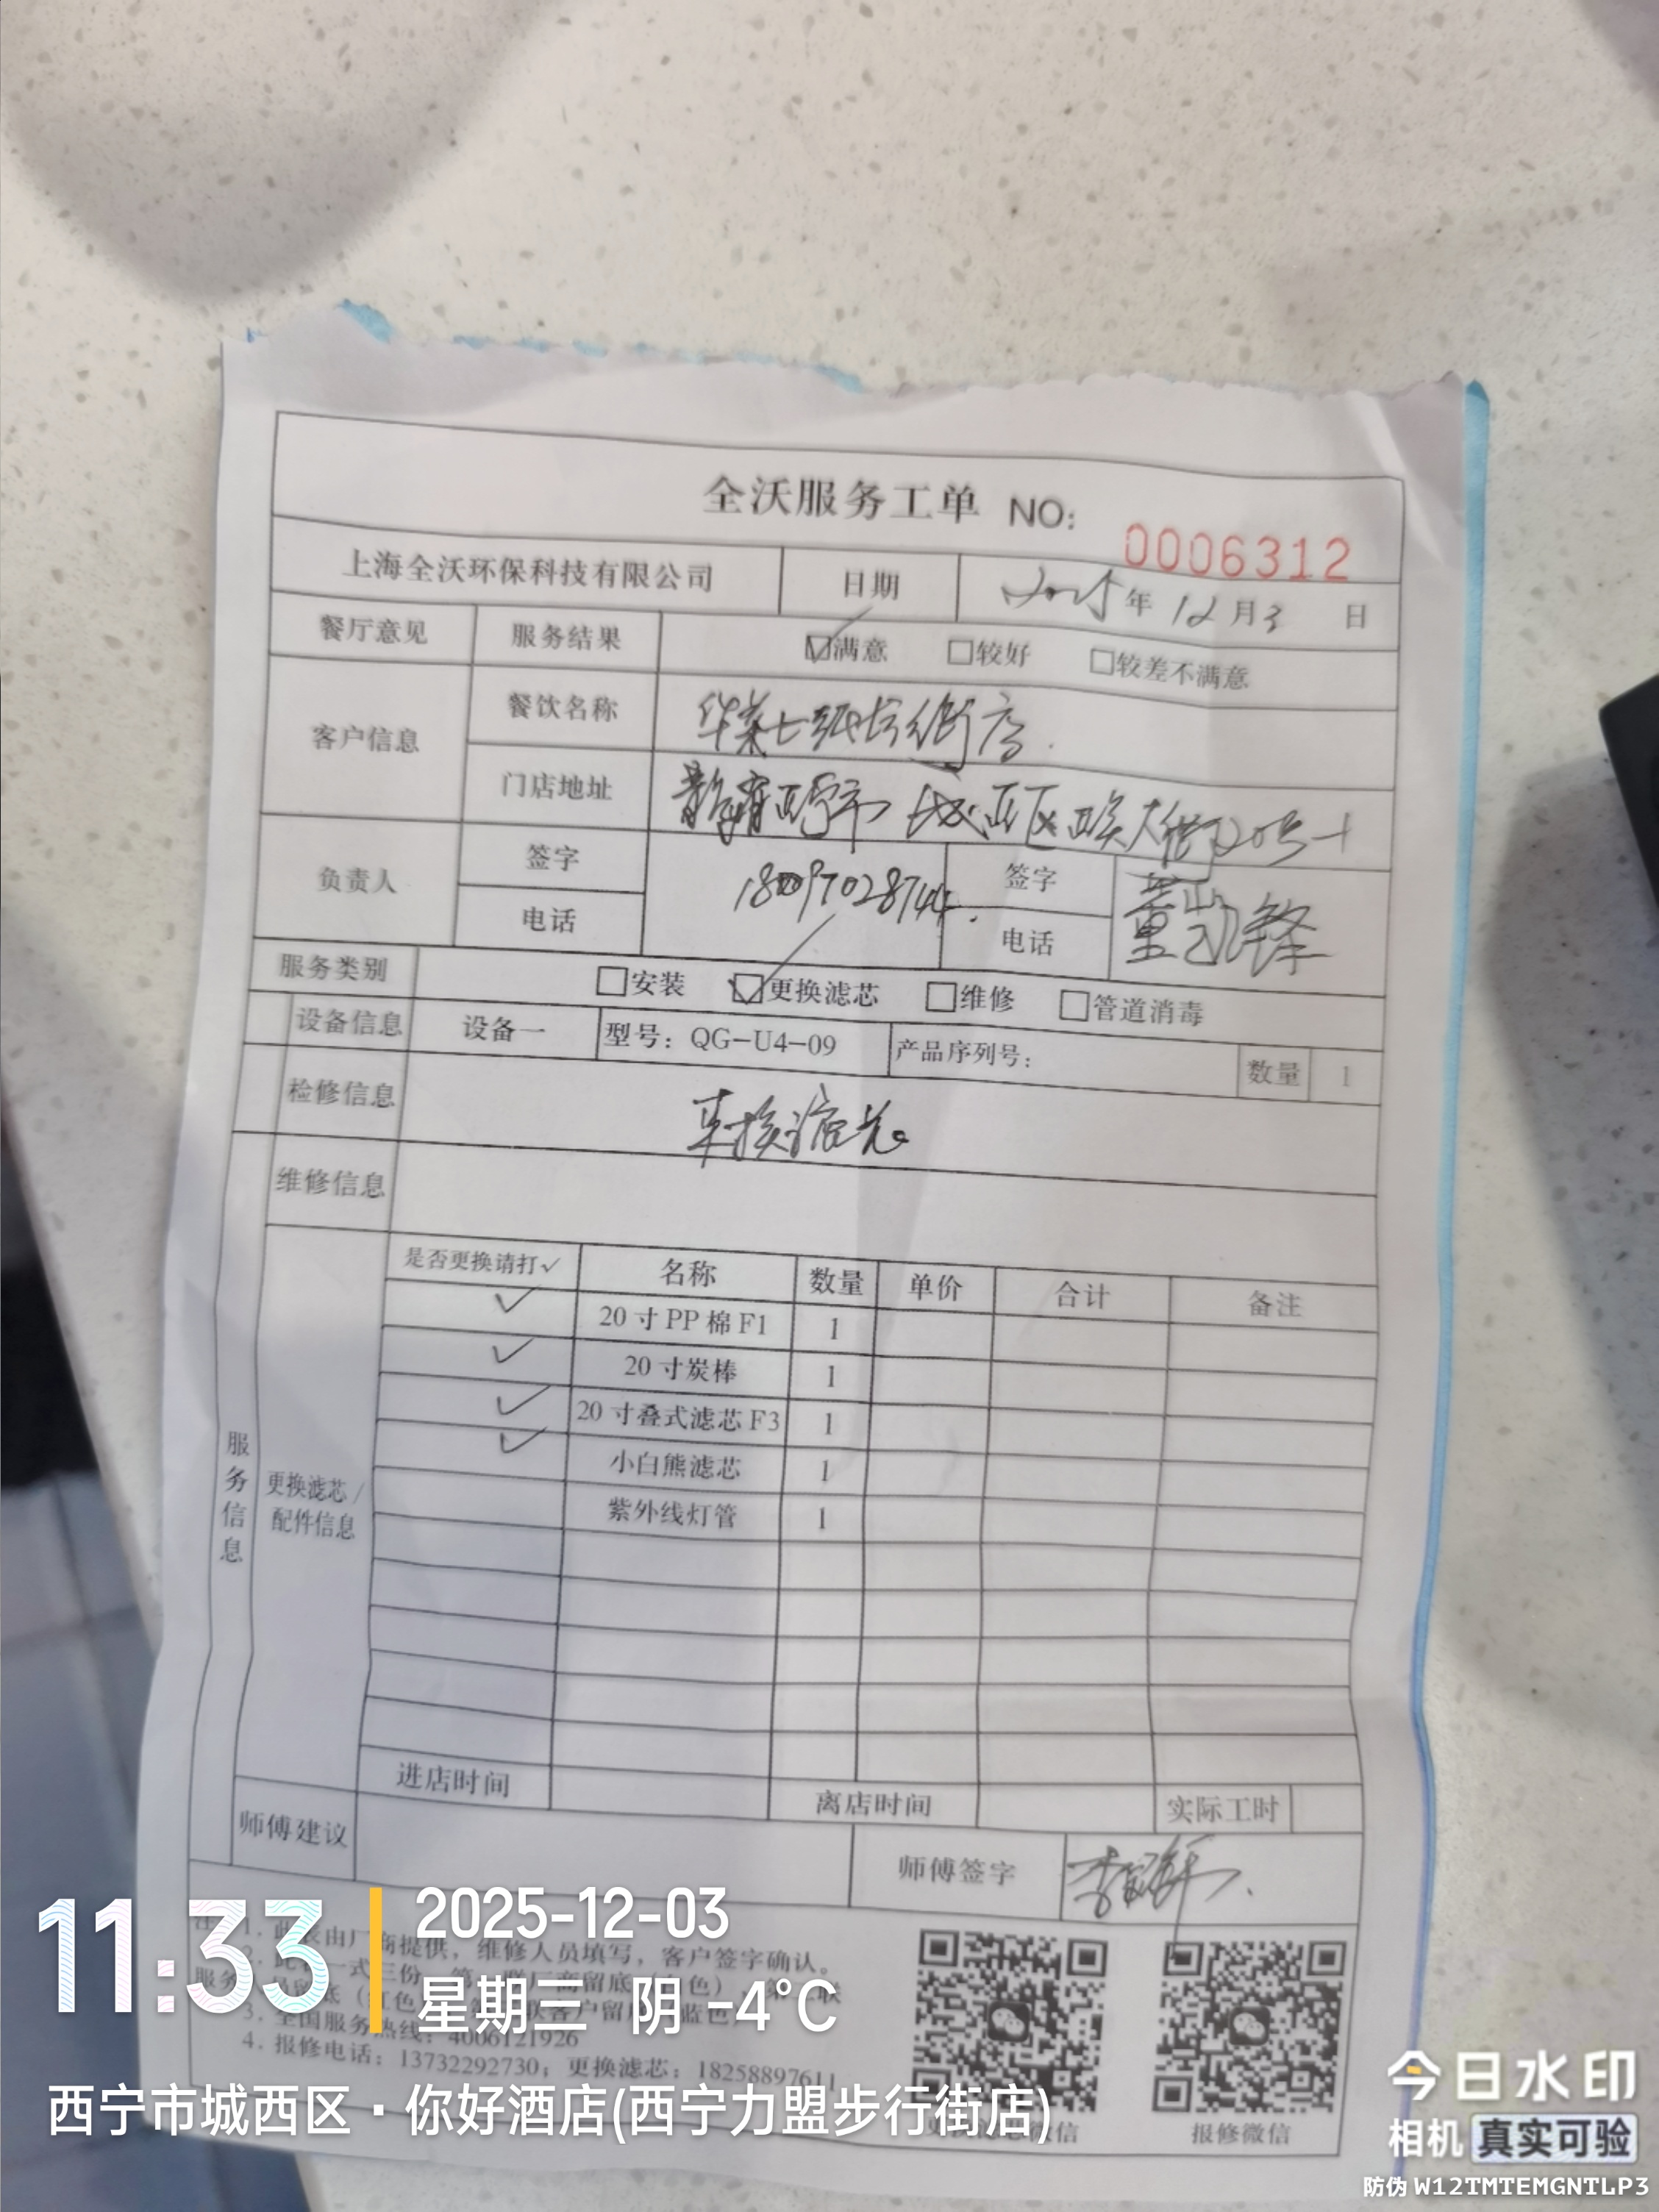 全沃服务工单 NO: 0006312
上海全沃环保科技有限公司 日期 2025年12月3日
餐厅意见 服务结果 ☑满意 □较好 □较差不满意
客户信息 餐饮名称 华莱士 店
门店地址 西宁市 城西区 大街
负责人 签字 18097028744. 签字 董凯锋
电话 电话
服务类别 □安装 ☑更换滤芯 □维修 □管道消毒
设备信息 设备一 型号：QG-U4-09 产品序列号： 数量 1
检修信息 更换滤芯。
维修信息
服务信息
更换滤芯/配件信息
是否更换请打✓ 名称 数量 单价 合计 备注
✓ 20寸PP棉F1 1
✓ 20寸炭棒 1
✓ 20寸叠式滤芯F3 1
✓ 小白熊滤芯 1
紫外线灯管 1
进店时间 离店时间 实际工时
师傅建议 师傅签字 李
1. 由厂商提供，维修人员填写，客户签字确认。
2. 一式三份
3. 全国服务热线：4006121926
4. 报修电话：13732292730；更换滤芯：18258897611
微信 报修微信
11:33 2025-12-03
星期三 阴 -4°C
西宁市城西区·你好酒店(西宁力盟步行街店)
今日水印
相机 真实可验
防伪 W12TMTEMGNTLP3